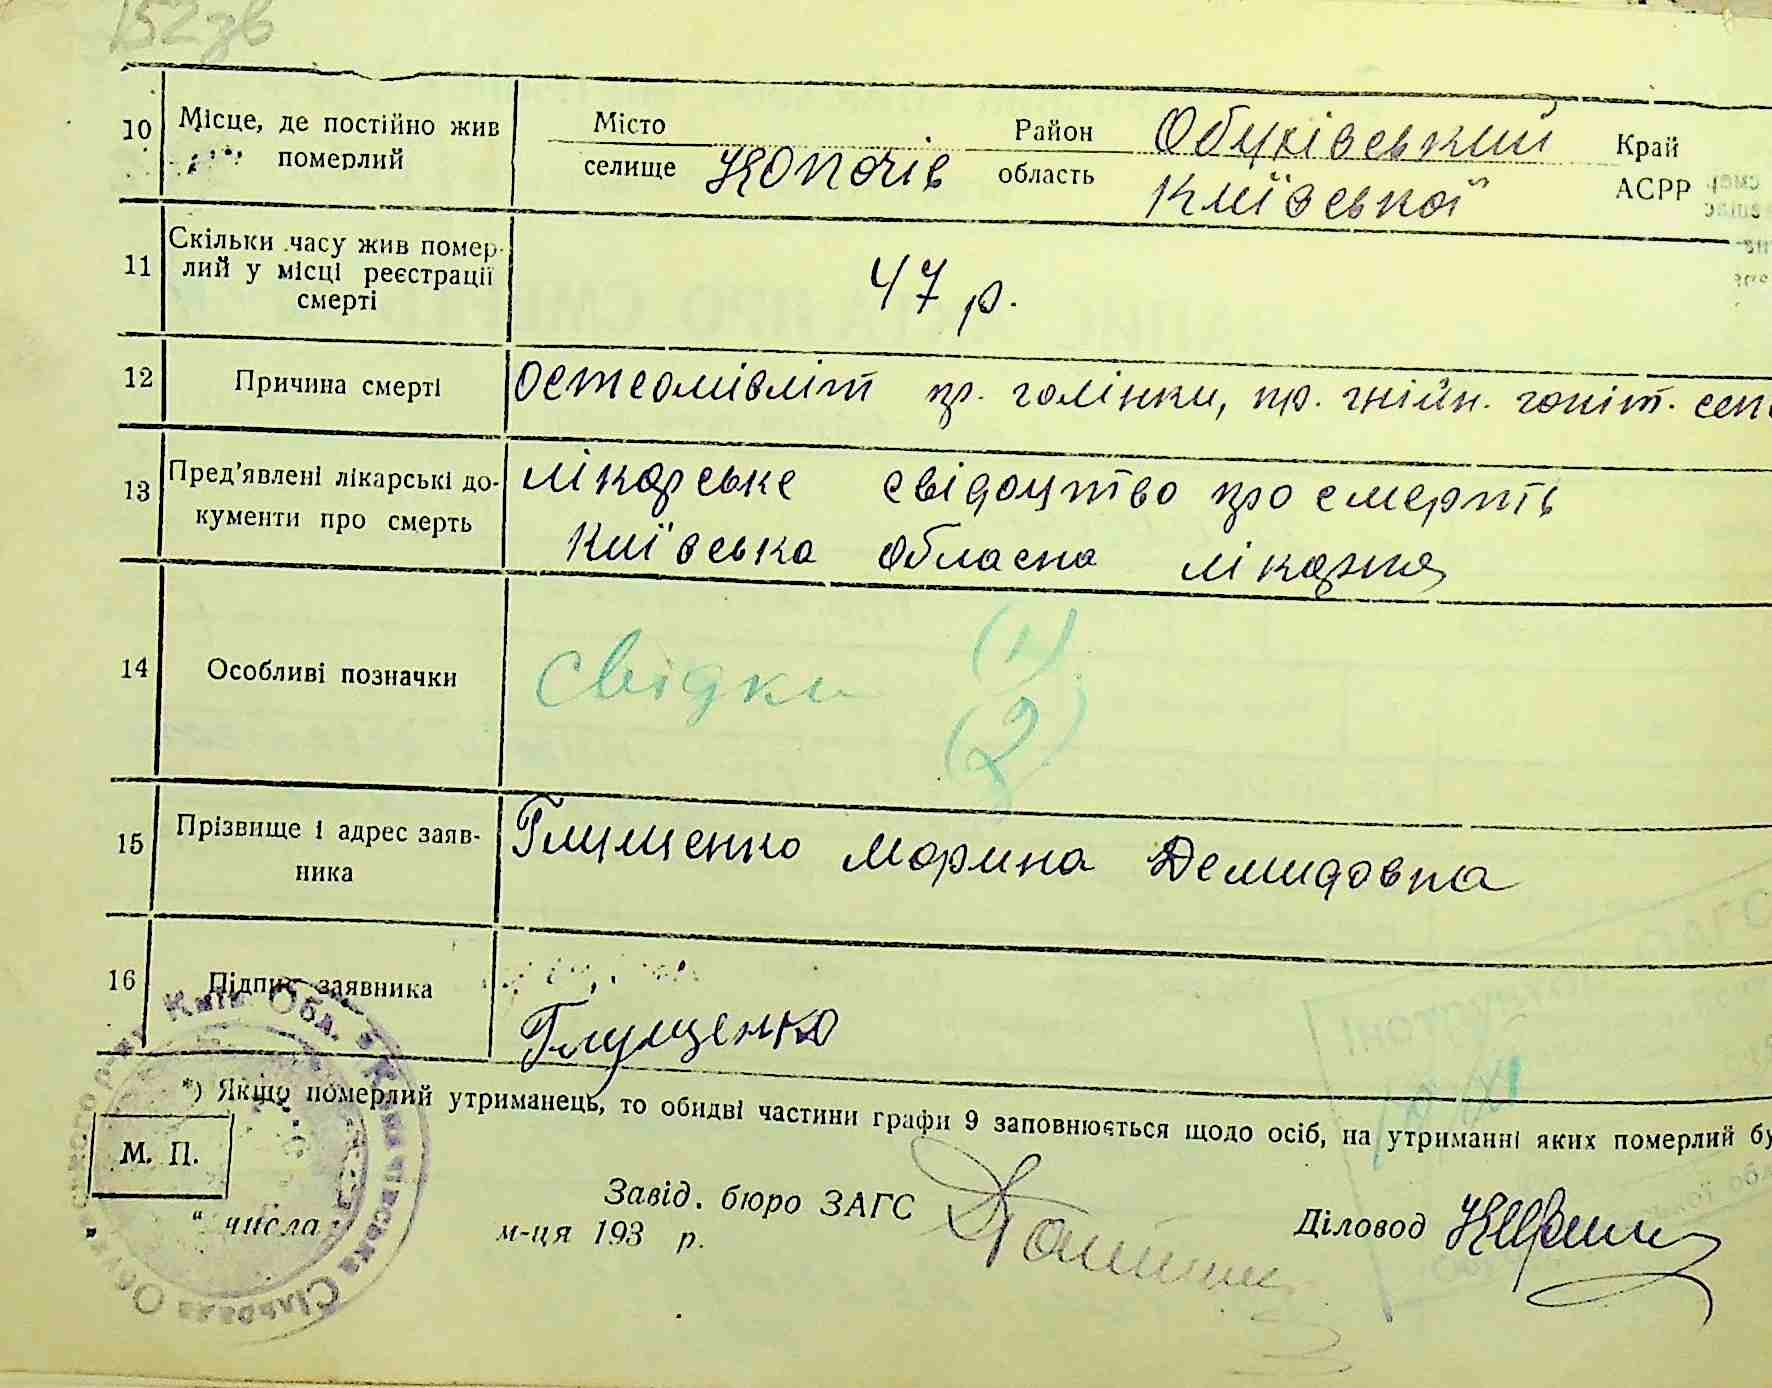 152зв
10 Місце, де постійно жив померлий
Місто селище Копачів Район Обухівський Край
область Київської АСРР
11 Скільки часу жив помер-
лий у місці реєстрації
смерті
47 р.
12 Причина смерті
Остеомієліт пр. голінки, пр. гнійн. гоніт. сеп
13 Пред'явлені лікарські до-
кументи про смерть
лікарське свідоцтво про смерть
Київська обласна лікарня
14 Особливі позначки
Свідки (1)
(2)
15 Прізвище і адрес заяв-
ника
Глущенко Морина Демидовна
16 Підпис заявника
Глущенко
*) Якщо померлий утриманець, то обидві частини графи 9 заповнюється щодо осіб, на утриманні яких померлий бу
М. П.
Завід. бюро ЗАГС
Діловод
" числа м-ця 193 р.
Київ. Обл.
Сільрада